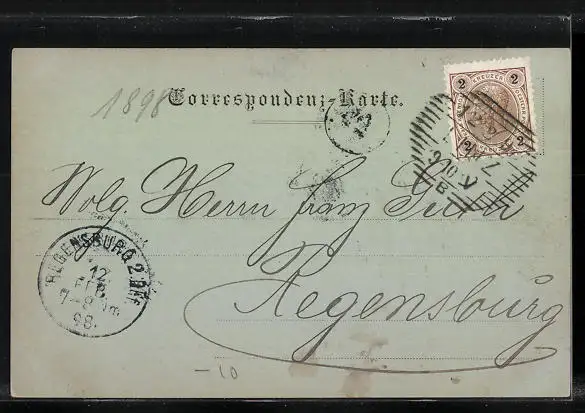 1898
Correspondenz-Karte.
2 KREUZER 2
2 2
Wolg. Herrn Franz
Regensburg
REGENSBURG 2.
12
FEB
7-8
98.
-10